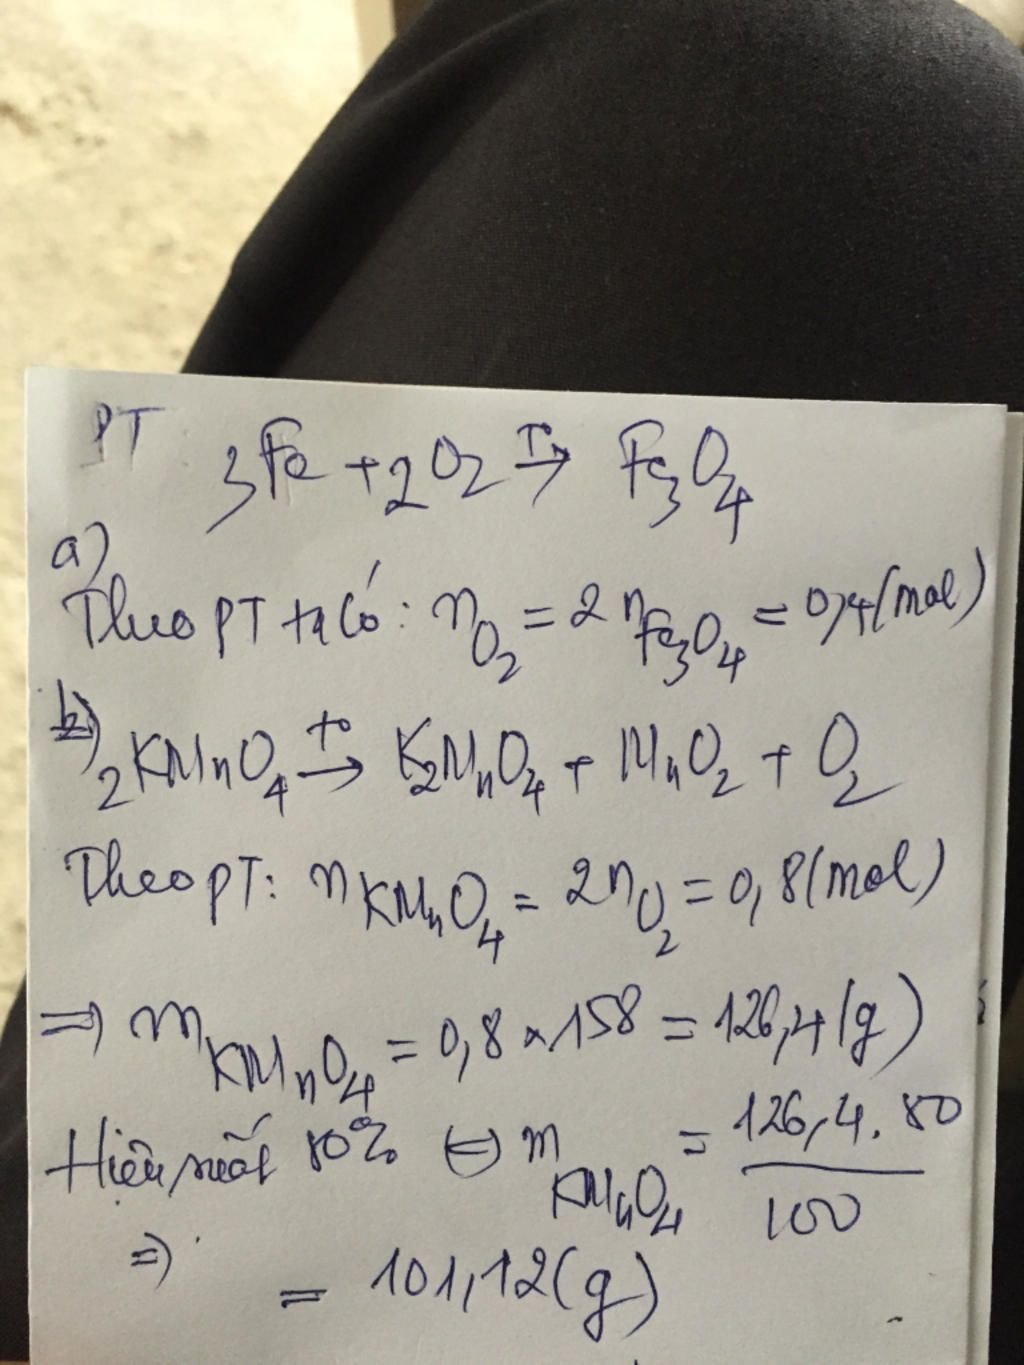 PT 3Fe + 2O₂ →(T°) Fe₃O₄
a)
Theo PT ta có: nO₂ = 2nFe₃O₄ = 0,4(mol)
b) 2KMnO₄ →(t°) K₂MnO₄ + MnO₂ + O₂
Theo PT: nKMnO₄ = 2nO₂ = 0,8(mol)
=> mKMnO₄ = 0,8 × 158 = 126,4(g)
Hiệu suất 80% <=> mKMnO₄ = 126,4.80 / 100
=> = 101,12(g)